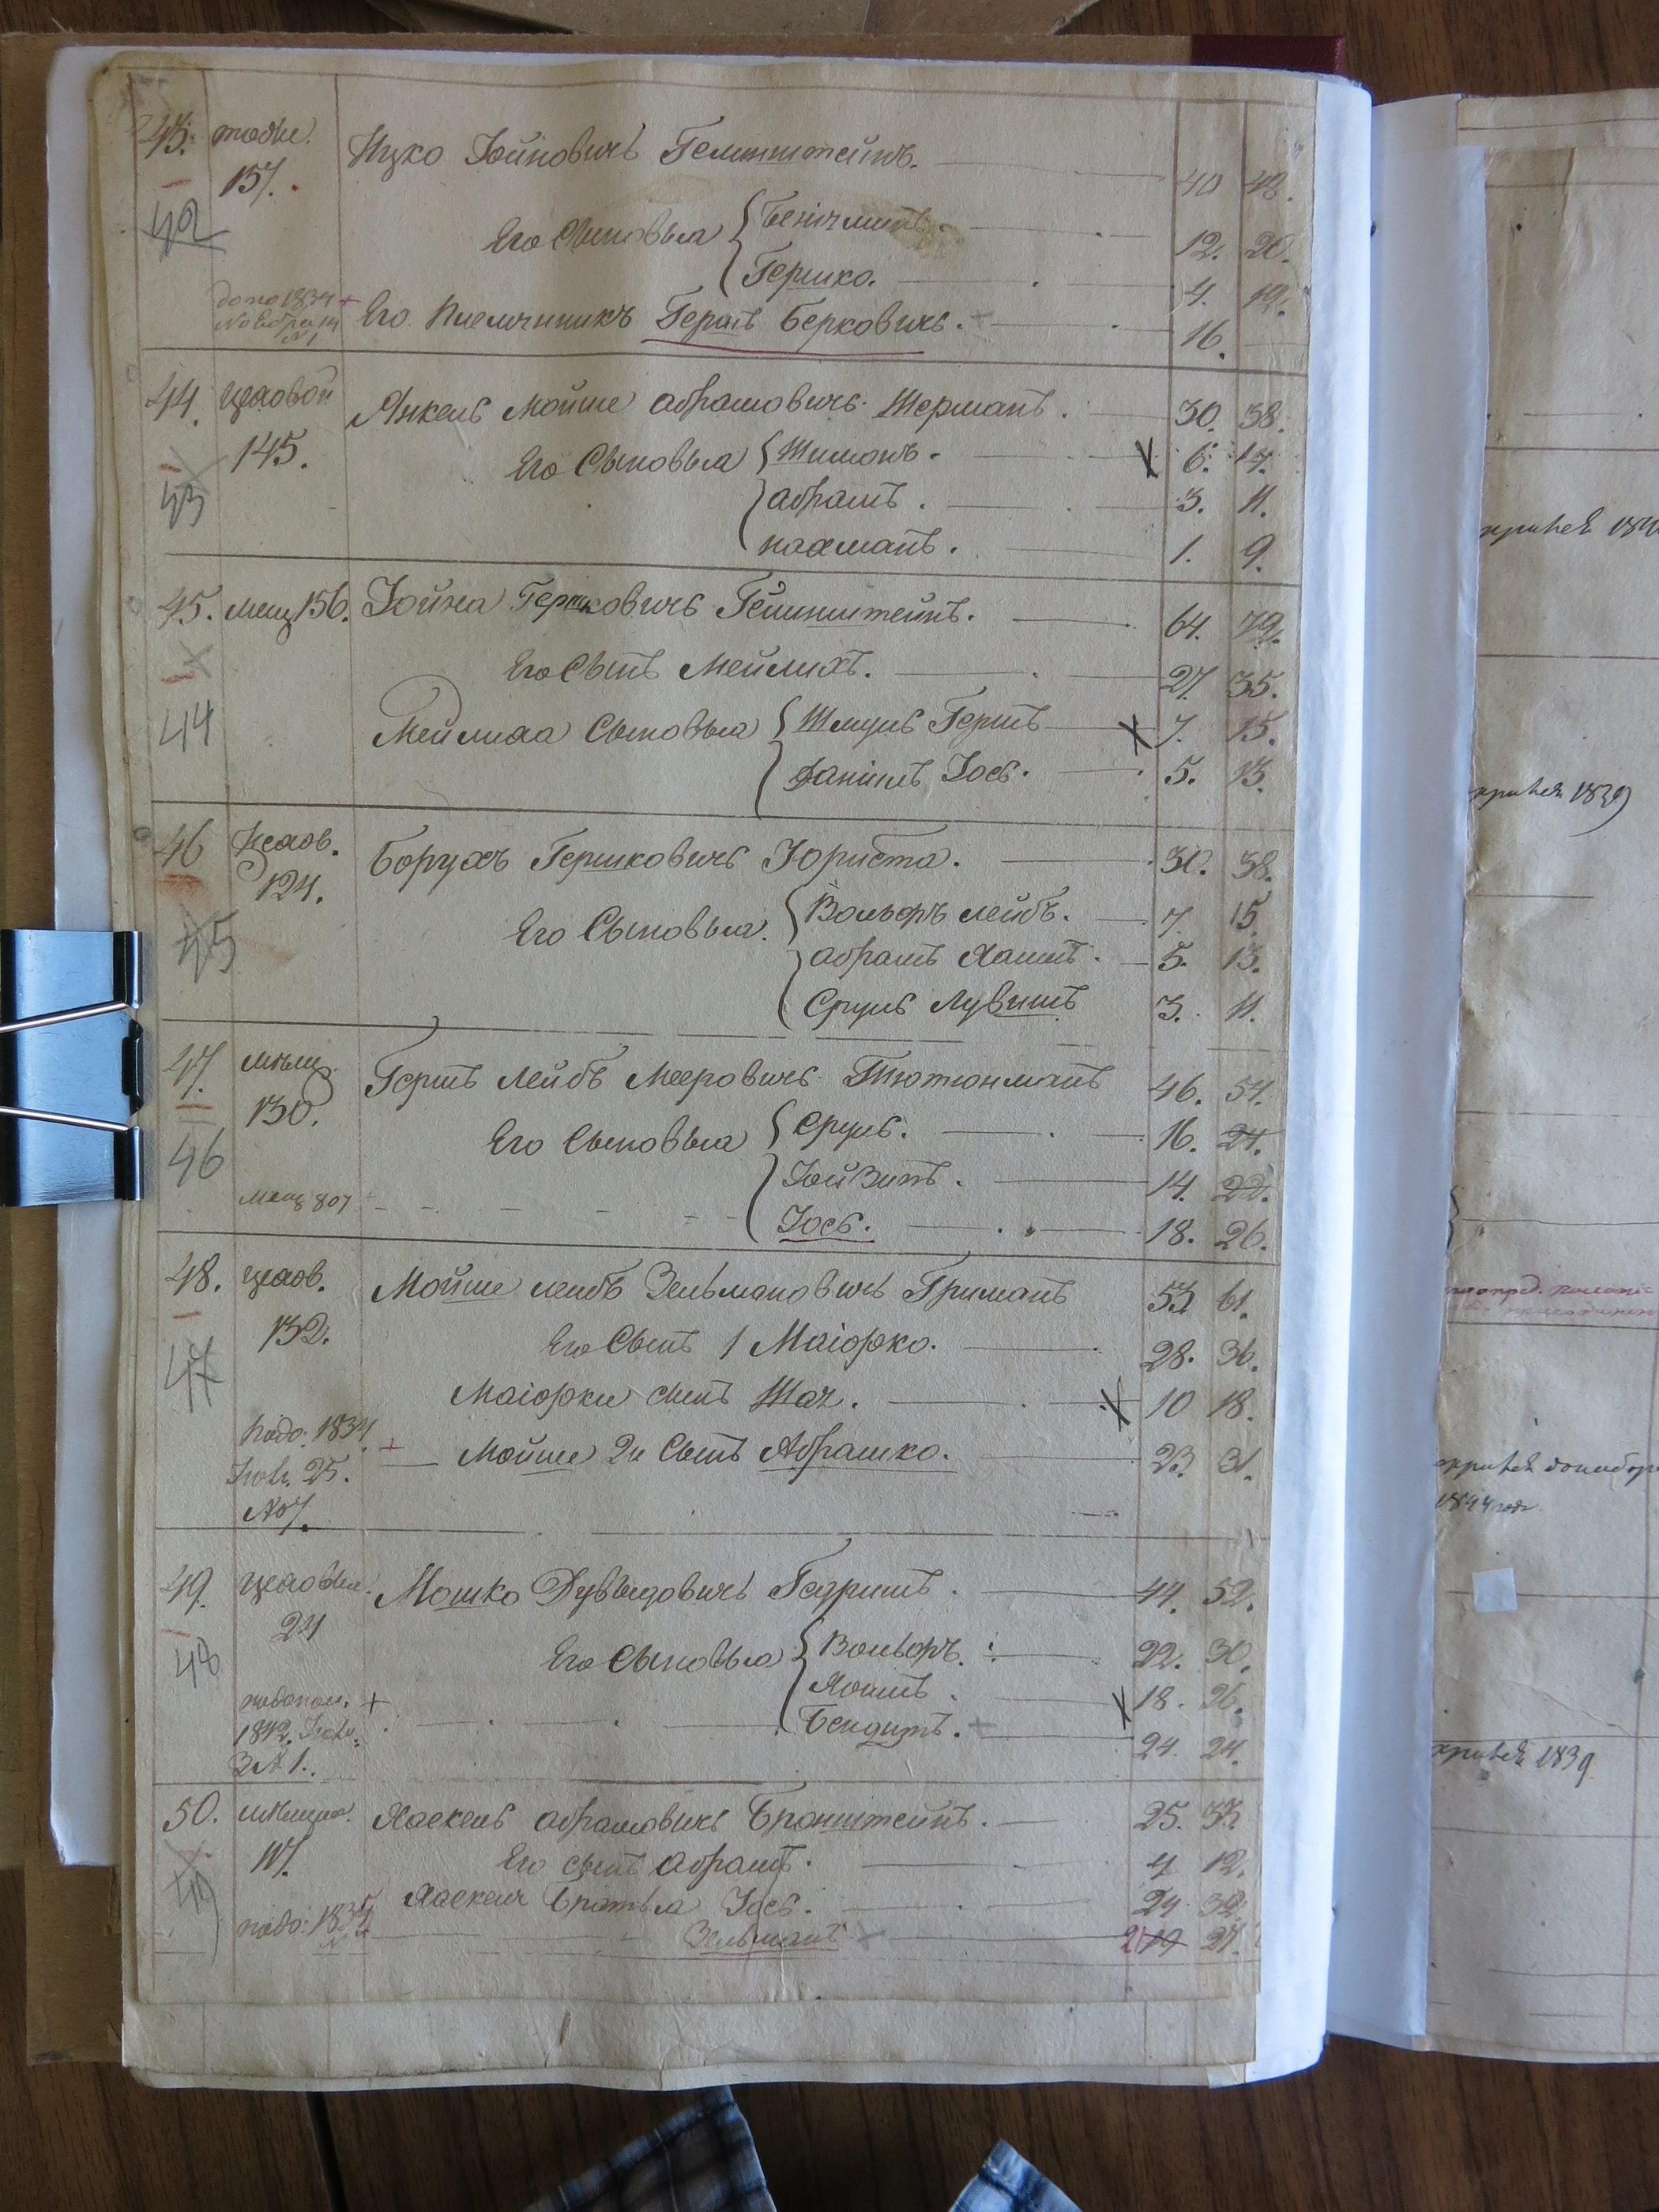 43. тоже. Ицко Іойновичъ Гелинштейнъ. 40 48.
137.
42
Его Сыновья { Беніяминъ. 12. 20.
Гершко. 4. 12.
допо 1834 +
Ноября 14 Его Племянникъ Гершъ Берковичъ. 16.
№ 1
44. цеховой Янкель Мойше Абрамовичъ Шерманъ. 30. 38.
145. Его Сыновья { Шимонъ. 6. 14.
43 Абрамъ. 3. 11.
Нахманъ. 1. 9.
45. мещ 156. Іойна Гершковичъ Гелинштейнъ. 64. 72.
Его Сынъ Мейлихъ. 27. 35.
44 Мейлиха Сыновья { Шмуль Гершъ 7. 15.
Даніилъ Іось. 5. 13.
46 Цехов. Борухъ Гершковичъ Юриста. 30. 38.
124.
45 Его Сыновья. { Вольфъ Лейбъ. 7. 15
Абрамъ Хаимъ. 5. 13.
Сруль Лувишъ 3. 11.
47. мѣщ. Гершъ Лейбъ Мееровичъ Тютюнманъ 46. 54.
130. Его Сыновья { Сруль. 16. 24.
46 Іойзипъ. 14. 22.
Мещ 807 Іось. 18. 26.
48. цехов. Мойше Лейбъ Зельмановичъ Гриманъ 53 61.
132. Его Сынъ 1 Маіорко. 28. 36.
47 Маіорки сынъ Шая. 10 18.
надо. 1834 + Мойше 2й Сынъ Абрашко. 23. 31.
25.
№ 7.
49. цеховы. Мошко Дувыдовичъ Гедришъ. 44. 52.
24 Его Сыновья { Вольфъ. 22. 30.
48 Хаимъ. 18. 26.
+ Бендитъ. 24. 24.
1842.
3 № 1.
50. мѣщан. Хаскель Абрамовичъ Бронштейнъ. 25. 33
117. Его сынъ Абрамъ. 4 12.
49 Хаскеля Братья Іось. 24 32
надо: 1835 Зельманъ 21 19 27.
1839
1844 года
1839